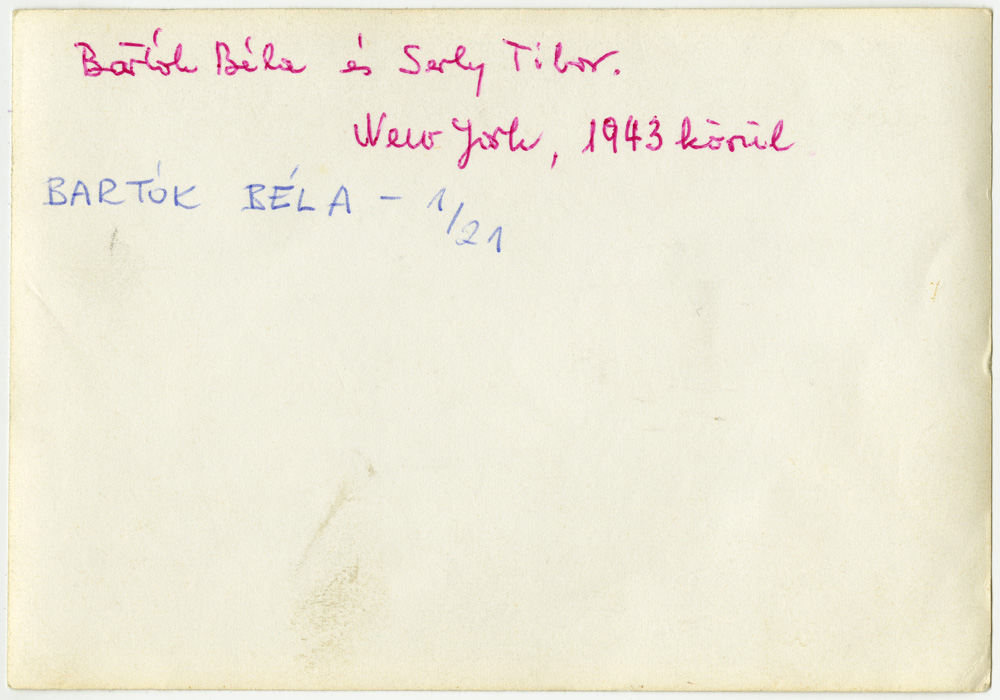 Bartók Béla és Serly Tibor.
New York, 1943 körül
BARTÓK BÉLA - 1/21